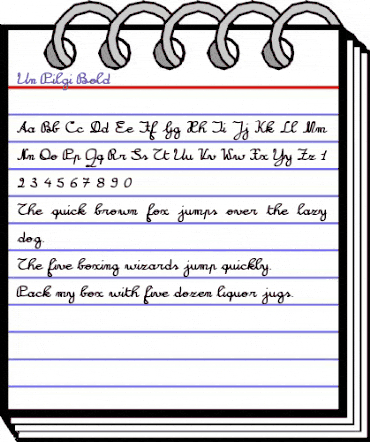 Un Pilgi Bold
Aa Bb Cc Dd Ee Ff Gg Hh Ii Jj Kk Ll Mm
Nn Oo Pp Qq Rr Ss Tt Uu Vv Ww Xx Yy Zz 1
2 3 4 5 6 7 8 9 0
The quick brown fox jumps over the lazy
dog.
The five boxing wizards jump quickly.
Pack my box with five dozen liquor jugs.